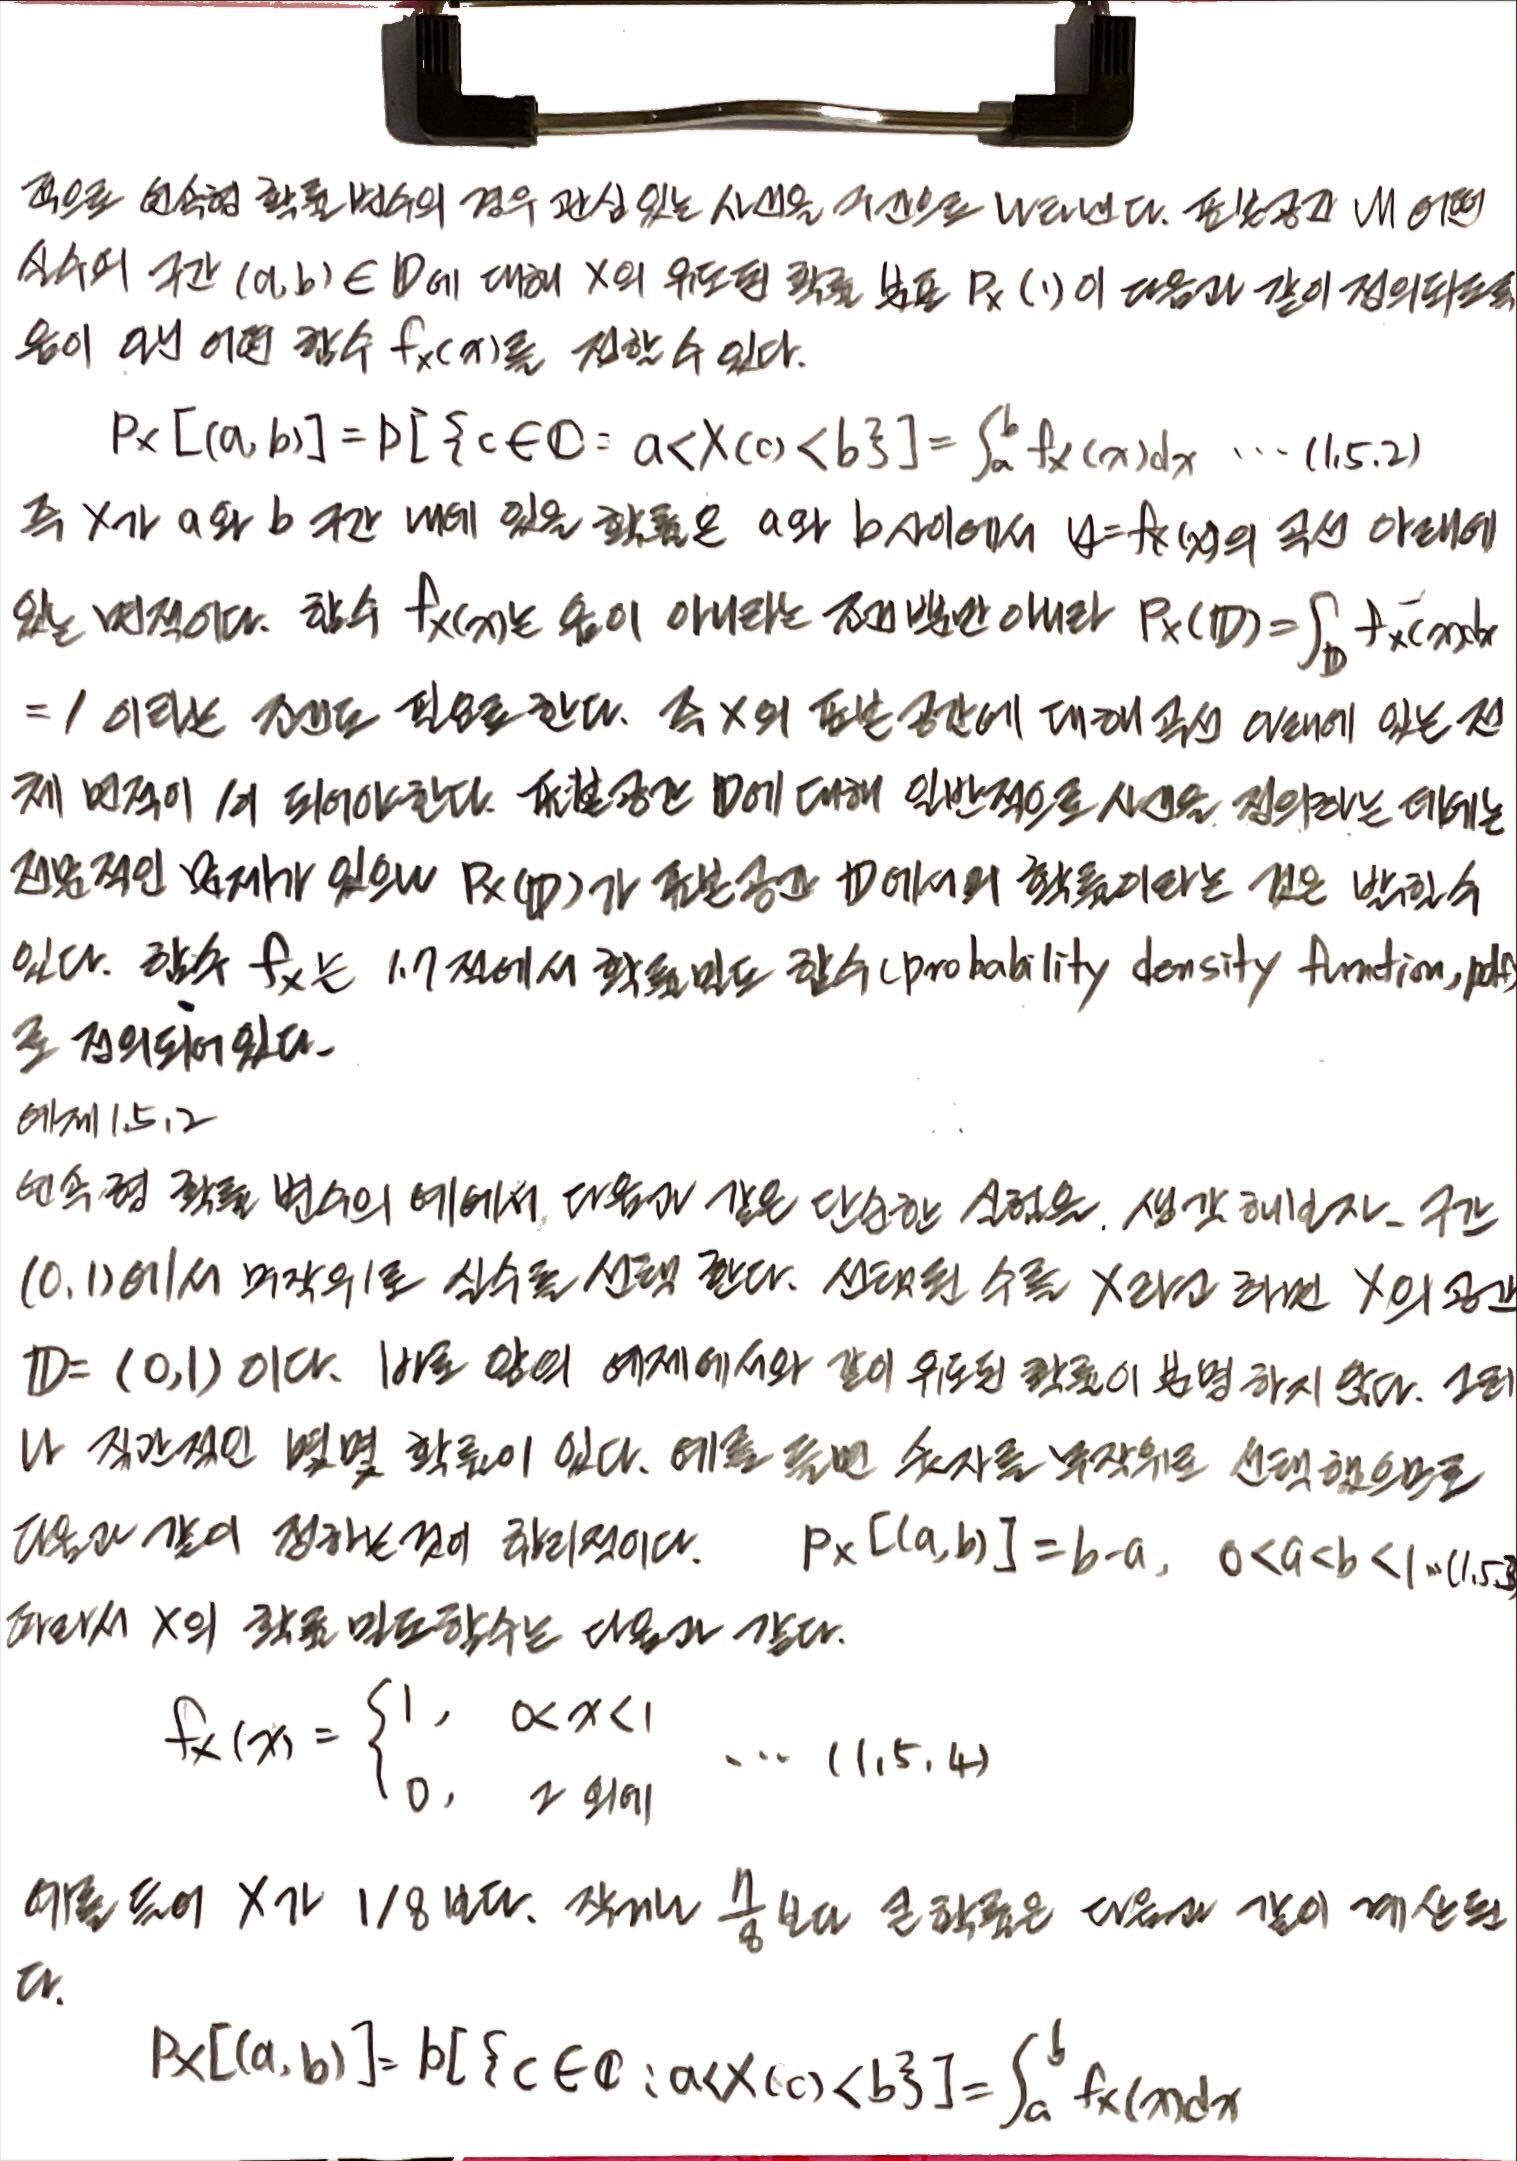 적으로 연속형 확률 변수의 경우 관심 있는 사건을 구간으로 나타낸다. 표본공간 내 어떤
실수의 구간 (a,b) ∈ 𝔻에 대해 X의 유도된 확률 분포 Pₓ(·)이 다음과 같이 정의되도록
음이 아닌 어떤 함수 fₓ(x)를 정할 수 있다.
Pₓ[(a,b)] = P[{c∈ℂ : a<X(c)<b}] = ∫ₐᵇ fₓ(x)dx ··· (1.5.2)
즉 X가 a와 b 구간 내에 있을 확률은 a와 b 사이에서 y=fₓ(x)의 곡선 아래에
있는 면적이다. 함수 fₓ(x)는 음이 아니라는 조건뿐만 아니라 Pₓ(𝔻) = ∫_𝔻 fₓ(x)dx
= 1 이라는 조건도 필요로 한다. 즉 X의 표본 공간에 대해 곡선 아래에 있는 전
체 면적이 1이 되어야 한다. 표본공간 𝔻에 대해 일반적으로 사건을 정의하는 데에는
전문적인 문제가 있으나 Pₓ(𝔻)가 표본공간 𝔻에서의 확률이라는 것은 밝힐 수
있다. 함수 fₓ는 1.7절에서 확률밀도 함수(probability density function, pdf)
로 정의되어 있다.
예제 1.5.2
연속형 확률 변수의 예에서 다음과 같은 단순한 실험을 생각해보자. 구간
(0,1)에서 무작위로 실수를 선택 한다. 선택된 수를 X라고 하면 X의 공간
𝔻 = (0,1) 이다. 바로 앞의 예제에서와 같이 유도된 확률이 분명하지 않다. 그러
나 직관적인 몇몇 확률이 있다. 예를 들면 숫자를 무작위로 선택했으므로
다음과 같이 정하는 것이 합리적이다. Pₓ[(a,b)] = b-a, 0<a<b<1 ··· (1.5.3)
따라서 X의 확률 밀도함수는 다음과 같다.
fₓ(x) = { 1, 0<x<1
0, 그 외에 ··· (1.5.4)
예를 들어 X가 1/8 보다. 작거나 7/8 보다 큰 확률은 다음과 같이 계산된
다.
Pₓ[(a,b)] = P[{c∈ℂ : a<X(c)<b}] = ∫ₐᵇ fₓ(x)dx